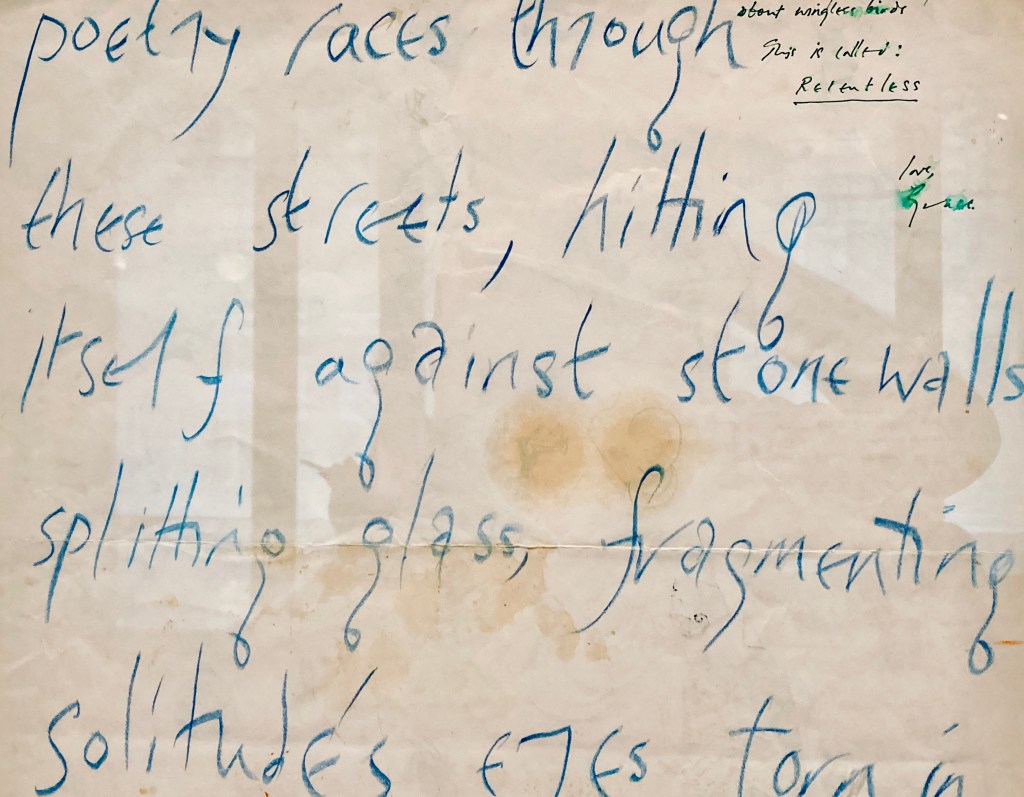 poetry races through
these streets, hitting
itself against stone walls
splitting glass, fragmenting
solitude's eyes torn in
about wingless birds
This is called:
Relentless
love,